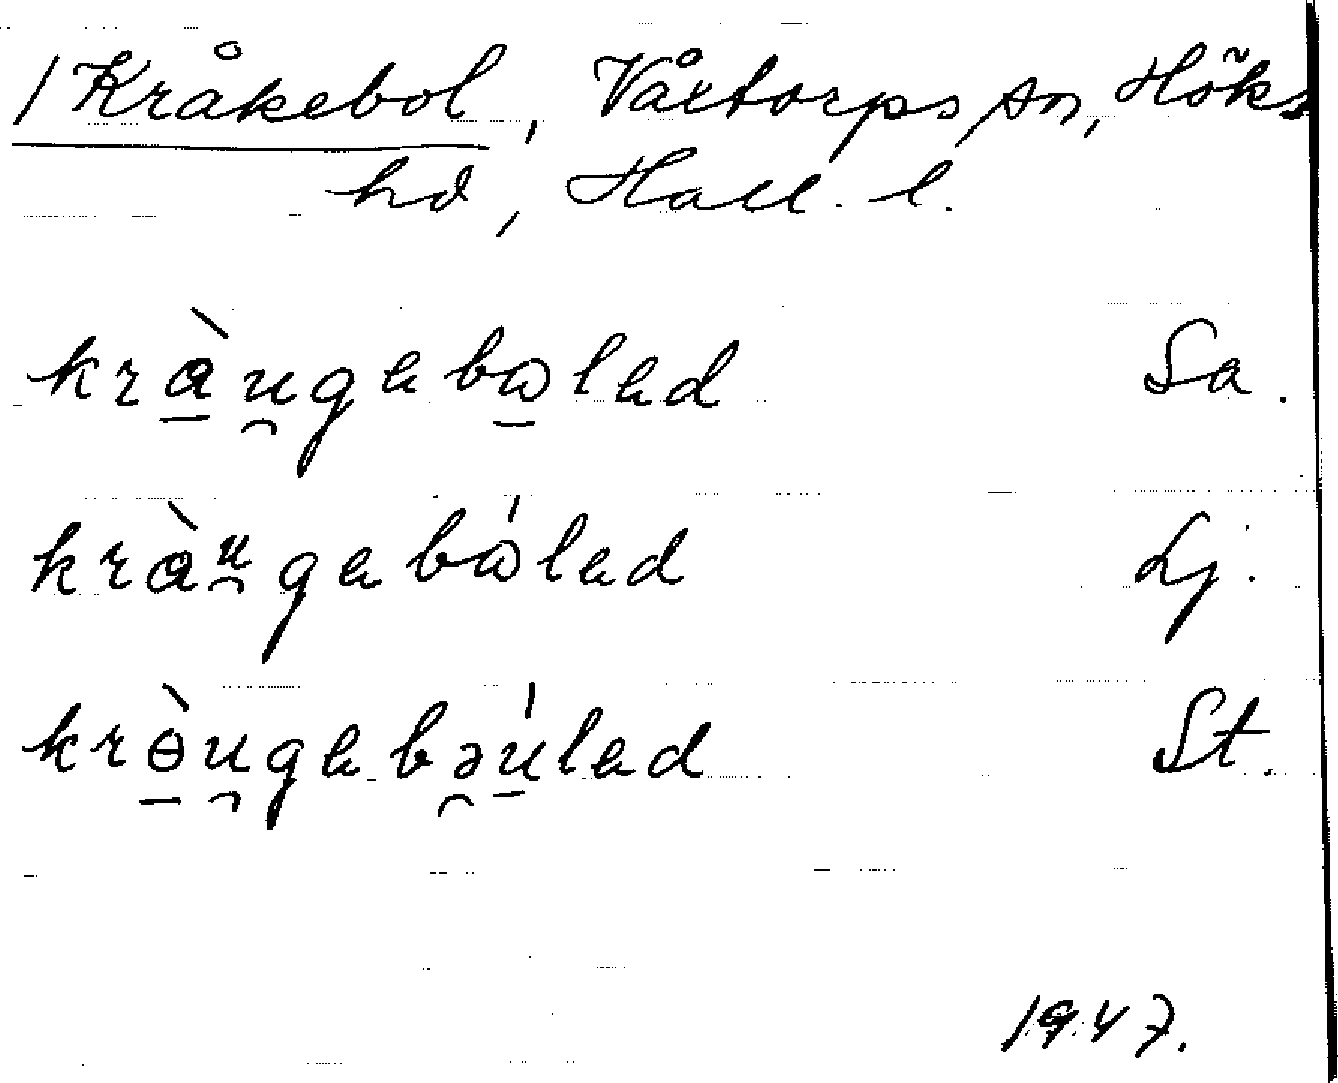 /Kråkebol, Våxtorps sn, Höks
hd, Hall. l.
krà̱u̯gabω̱lad Sa.
kràu̯gabώlad Lj.
krө̱̀u̯gabə̯ú̱lad St.
1947.